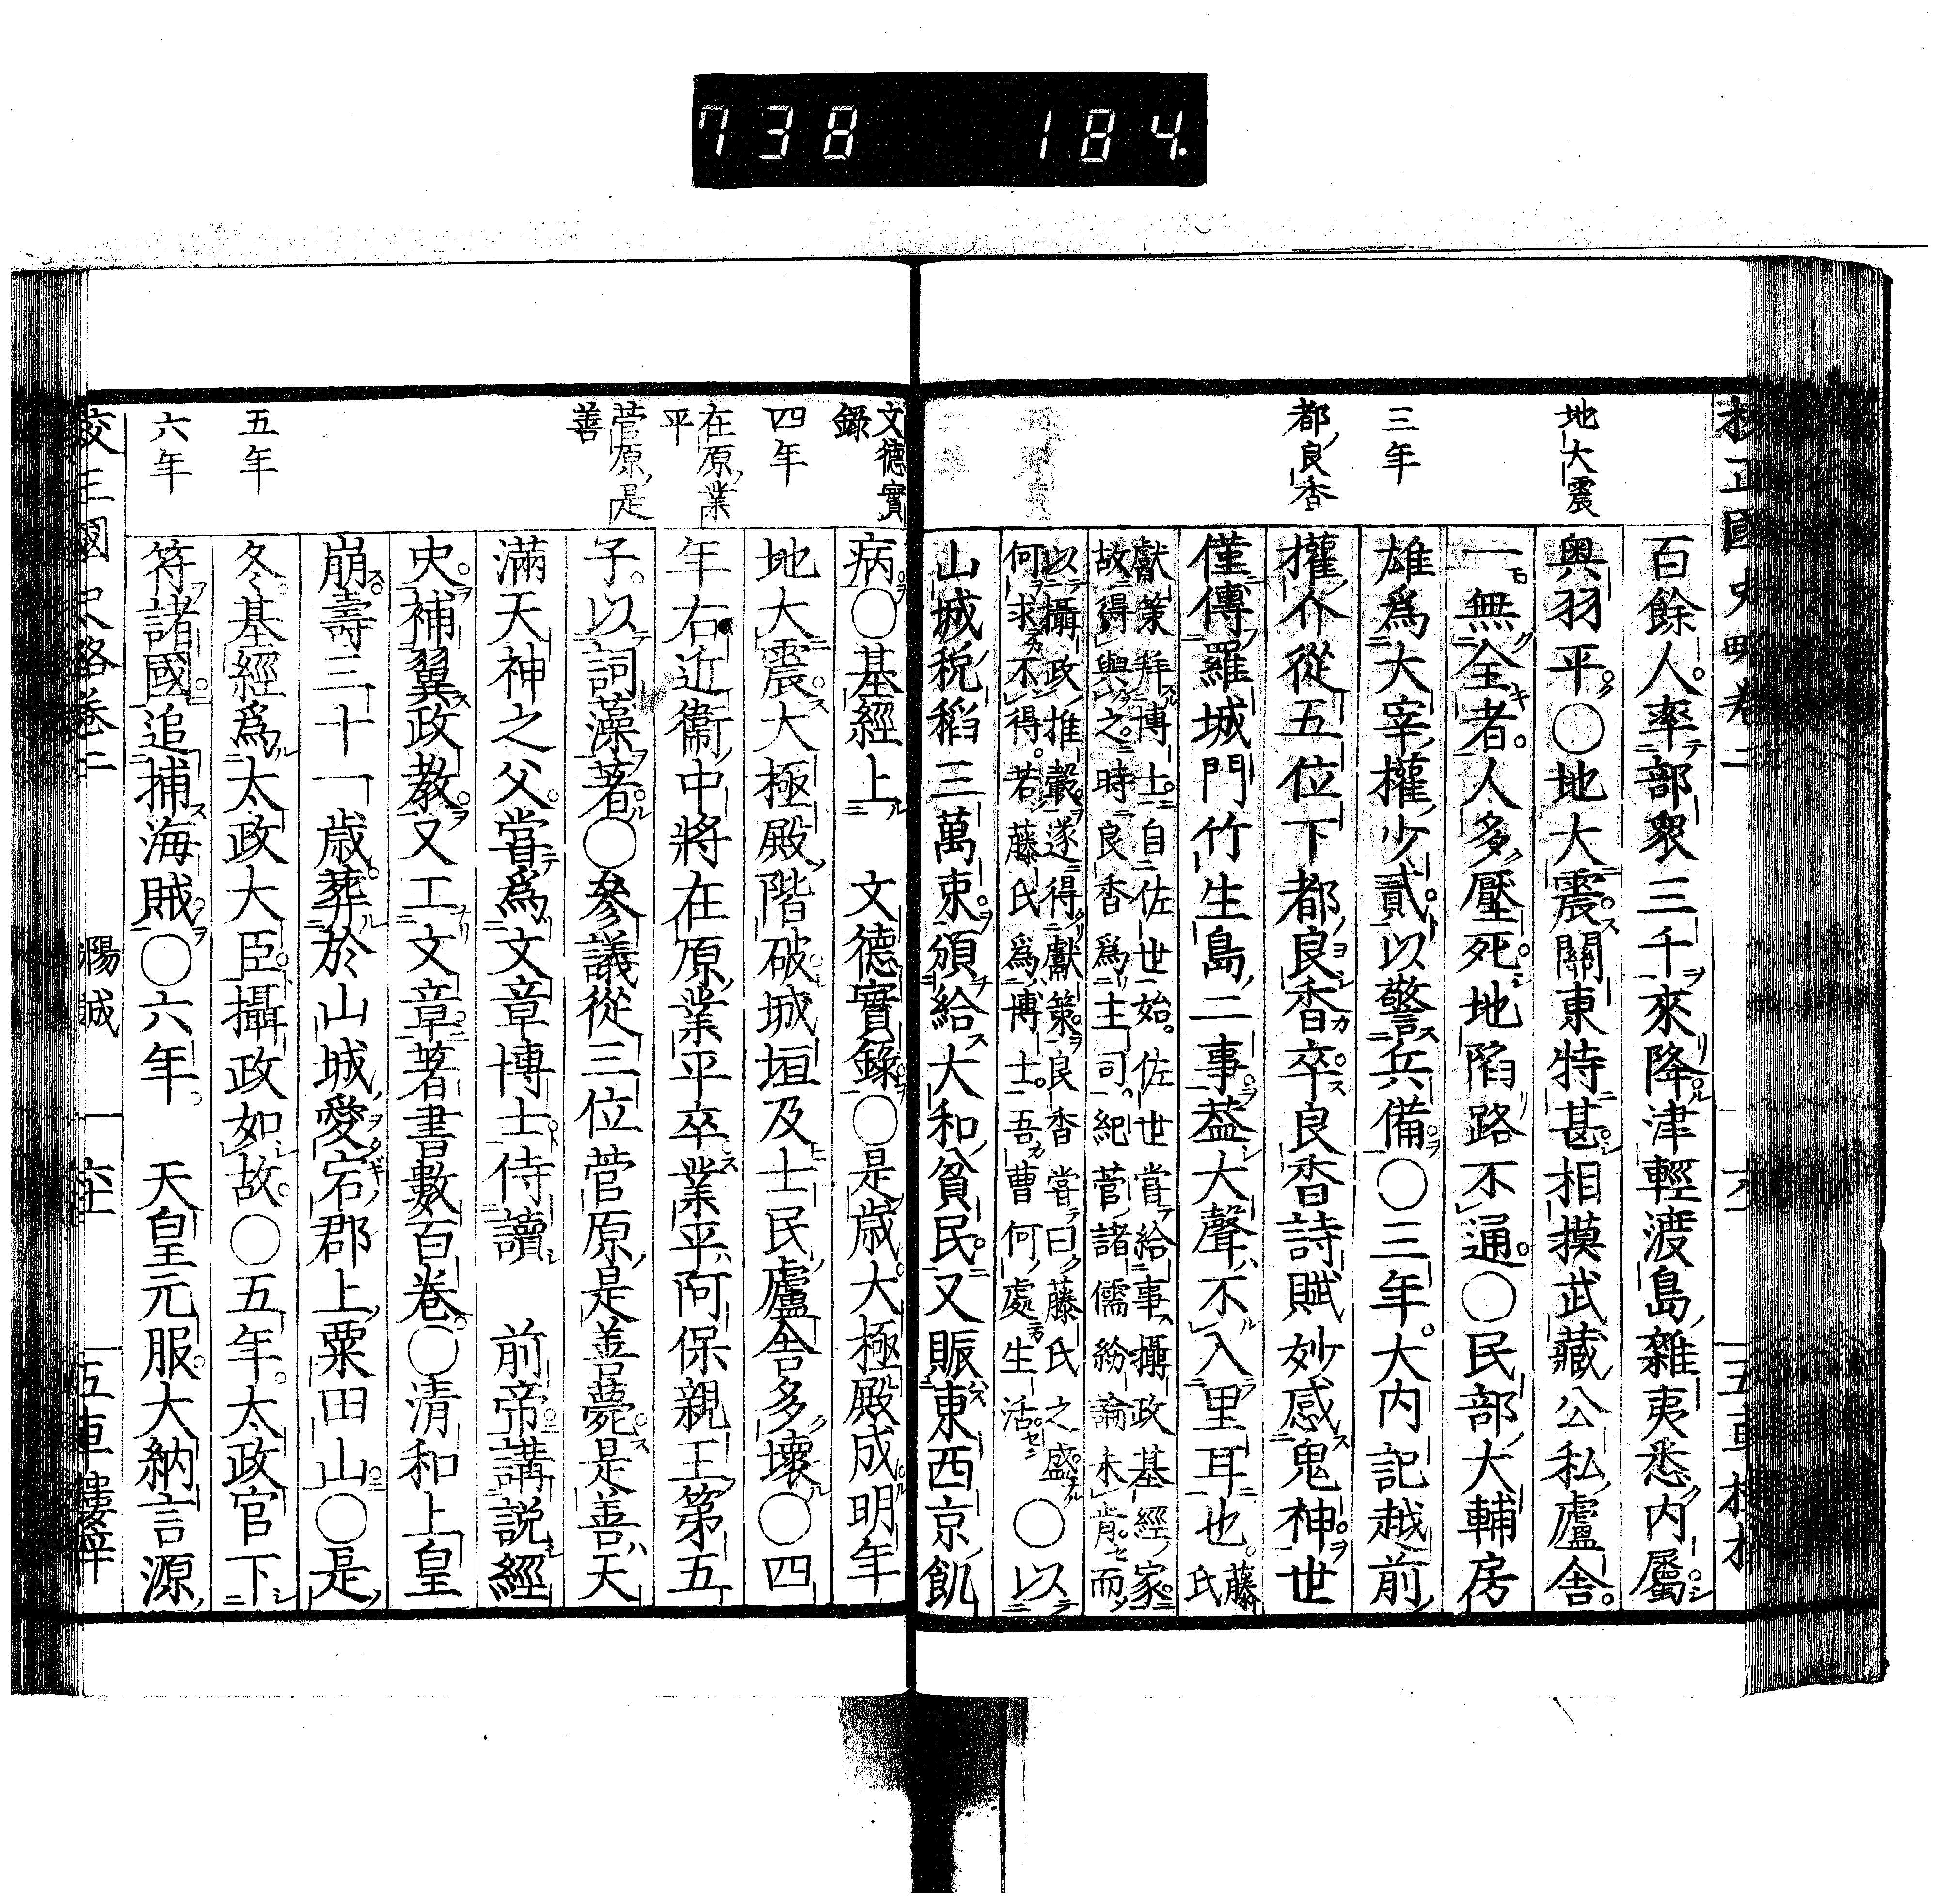 738 184.
地大震
三年
都良香
百餘人。率部衆三千來降。津輕渡島雜夷悉內屬。
奥羽平。〇地大震。關東特甚。相摸武藏公私廬舍。
一無全者。人多壓死。地陷路不通。〇民部大輔房
雄爲大宰權少貳。以警兵備。〇三年。大内記越前
權介從五位下都良香卒。良香詩賦妙感鬼神。世
僅傳羅城門竹生島二事。葢大聲不入里耳也。藤氏
獻策拜博士。自佐世始。佐世嘗給事攝政基經家。
故得與之。時良香爲主司。紀菅諸儒紛論未肯而
以攝政推轂。遂得獻策。良香嘗曰。藤氏之盛。
何求不得。若藤氏爲博士。吾曹何處生活。〇以
山城税稻三萬束。頒給大和貧民。又賑東西京飢
文德實錄
四年
在原業平
菅原是善
五年
六年
病。〇基經上 文德實錄。〇是歳。大極殿成。明年
地大震。大極殿階破。城垣及士民廬舍多壞。〇四
年。右近衞中將在原業平卒。業平阿保親王第五
子。以詞藻著。〇參議從三位菅原是善薨。是善天
滿天神之父。嘗爲文章博士。侍讀 前帝。講説經
史。補翼政教。又工文章。著書數百卷。〇清和上皇
崩。壽三十一歳。葬於山城愛宕郡上粟田山。〇是
冬。基經爲太政大臣。攝政如故。〇五年。太政官下
符諸國。追捕海賊。〇六年。 天皇元服。大納言源